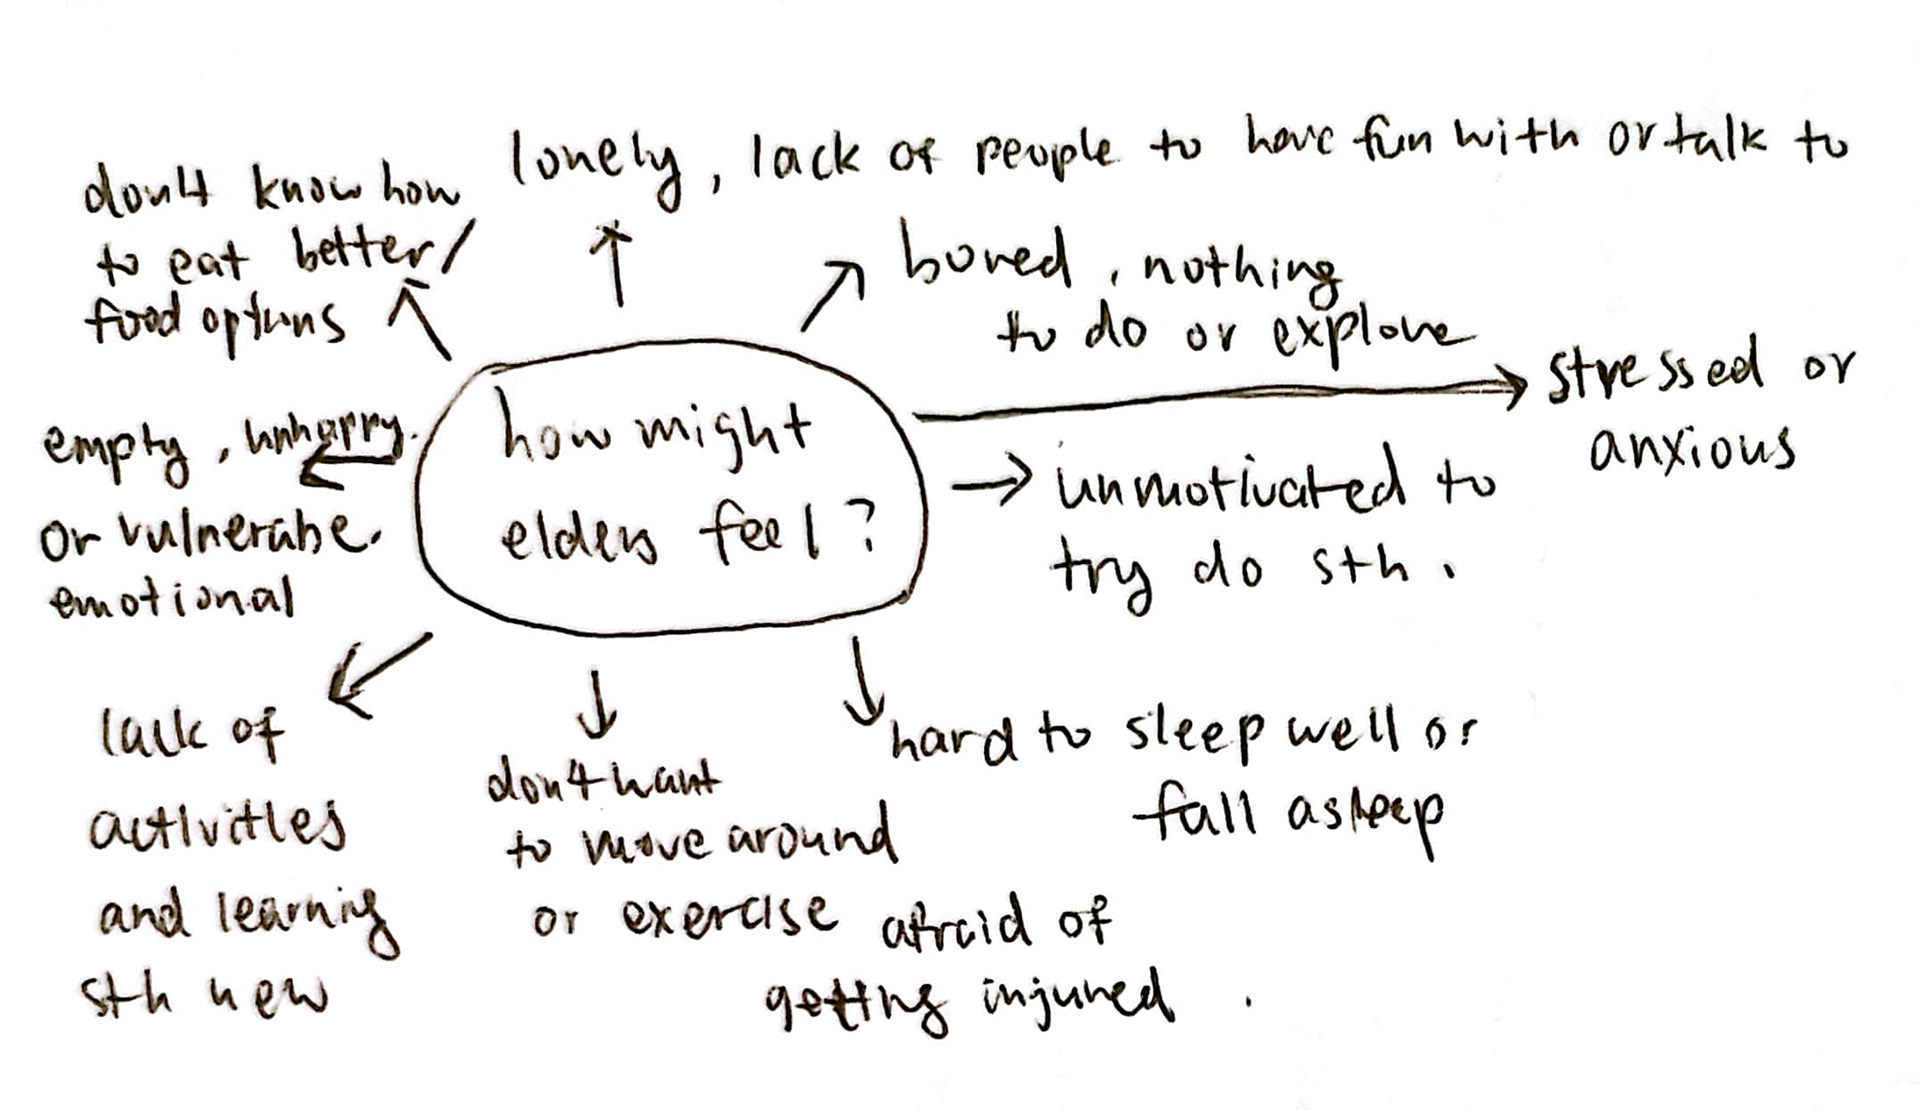 lonely, lack of people to have fun with or talk to
don't know how
to eat better/
food options
bored, nothing
to do or explore
stressed or
anxious
how might
elders feel?
empty, unhappy.
or vulnerabe.
emotional
unmotivated to
try do sth.
lack of
activities
and learning
sth new
don't want
to move around
or exercise afraid of
getting injured.
hard to sleep well or
fall asleep